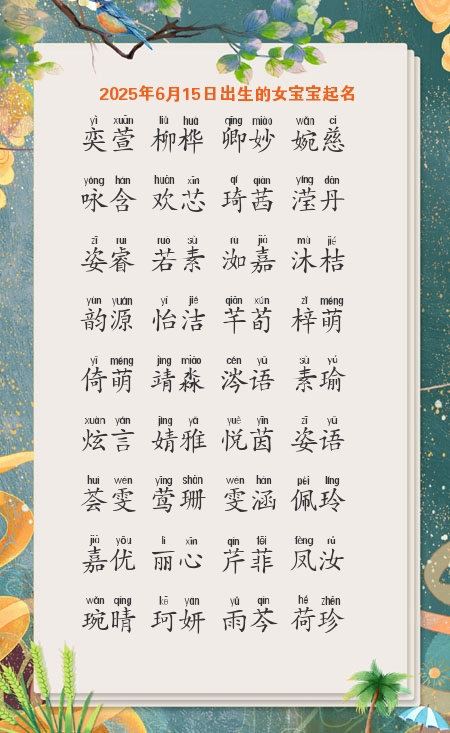 2025年6月15日出生的女宝宝起名
yì xuān liǔ huà qīng miào wǎn cí
奕萱 柳桦 卿妙 婉慈
yǒng hán huān xīn qí qiàn yíng dān
咏含 欢芯 琦茜 滢丹
zī ruì ruò sù rù jiā mù jié
姿睿 若素 洳嘉 沐桔
yùn yuán yí jié qiān xún zǐ méng
韵源 怡洁 芊荀 梓萌
yǐ méng jìng miǎo cén yǔ sù yú
倚萌 靖淼 涔语 素瑜
xuàn yán jìng yǎ yuè yīn zī yǔ
炫言 婧雅 悦茵 姿语
huì wén yīng shān wén hán pèi líng
荟雯 莺珊 雯涵 佩玲
jiā yōu lì xīn qín fēi fèng rǔ
嘉优 丽心 芹菲 凤汝
wǎn qíng kē yán yǔ qín hé zhēn
琬晴 珂妍 雨芩 荷珍